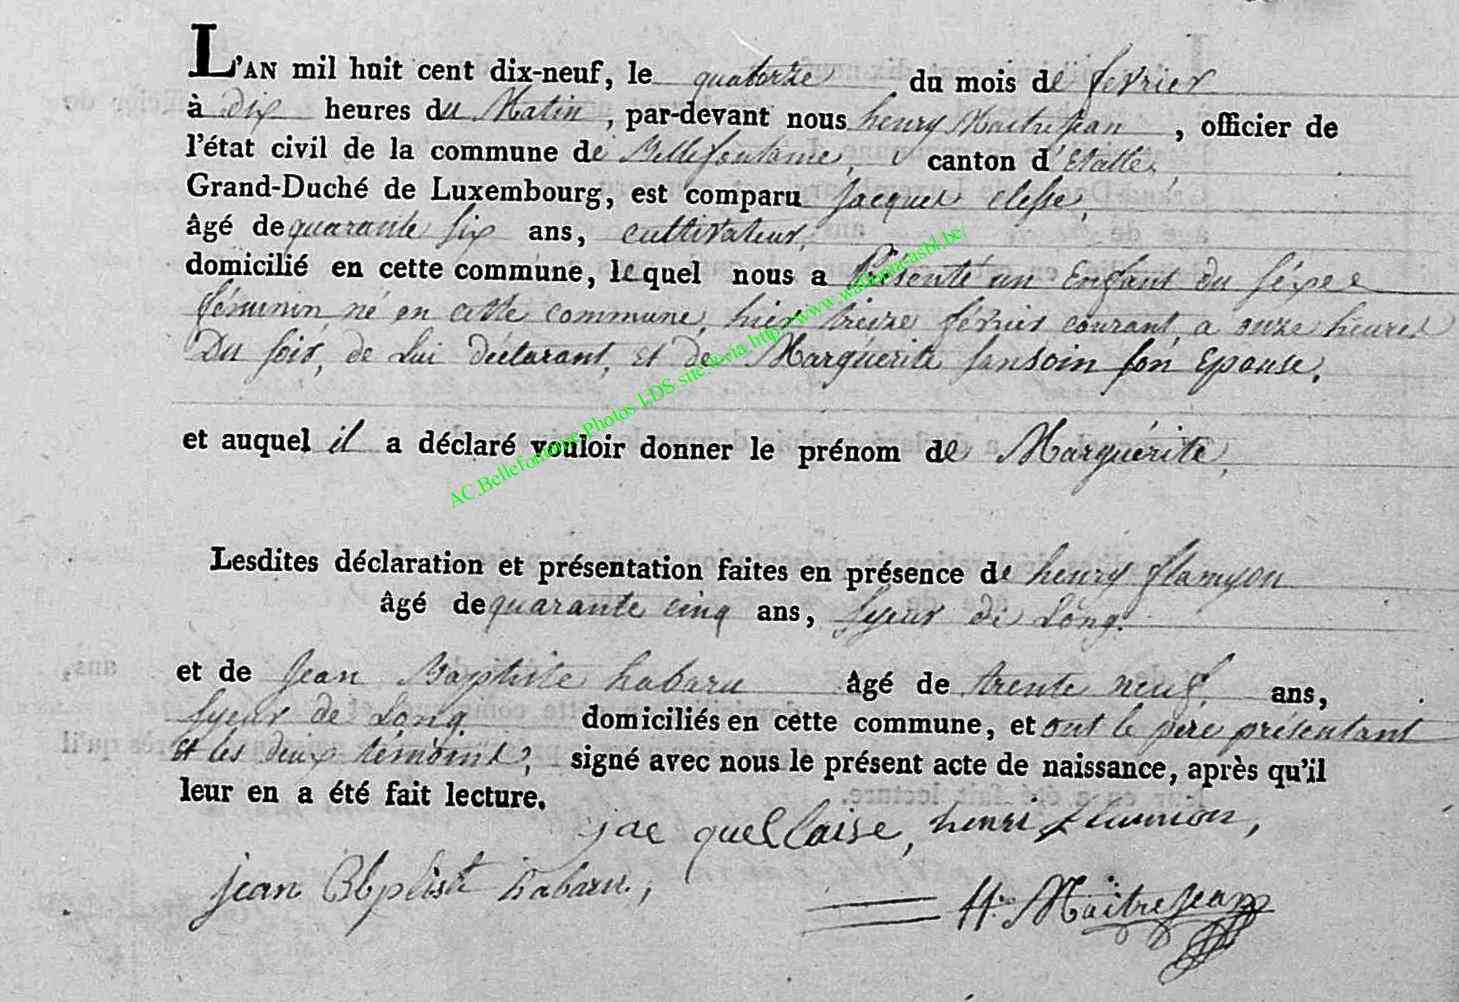 L'AN mil huit cent dix-neuf, le quatorze du mois de fevrier
à dix heures du Matin, par-devant nous henry Maitrejean, officier de
l'état civil de la commune de Bellefontaine, canton d'Etalle,
Grand-Duché de Luxembourg, est comparu Jacques clesse,
âgé de quarante six ans, cultivateur,
domicilié en cette commune, lequel nous a Présenté un Enfant du séxe
féminin né en cette commune, hier treize février courant, a onze heures
Du soir, de Lui déclarant, et de Marguérite sansoin son Epouse.
et auquel il a déclaré vouloir donner le prénom de Marguérite,
Lesdites déclaration et présentation faites en présence de henry flamyon
âgé de quarante cinq ans, syeur de Long.
et de Jean Baptiste habaru âgé de trente neuf ans,
syeur de Long domiciliés en cette commune, et ont le père présentant
et les deux témoins, signé avec nous le présent acte de naissance, après qu'il
leur en a été fait lecture.
jac quel Claise, henri
jean Bbptist habaru,
H. Maitrejean
AC Bellefontaine Photos LDS site via http://www.wallonica